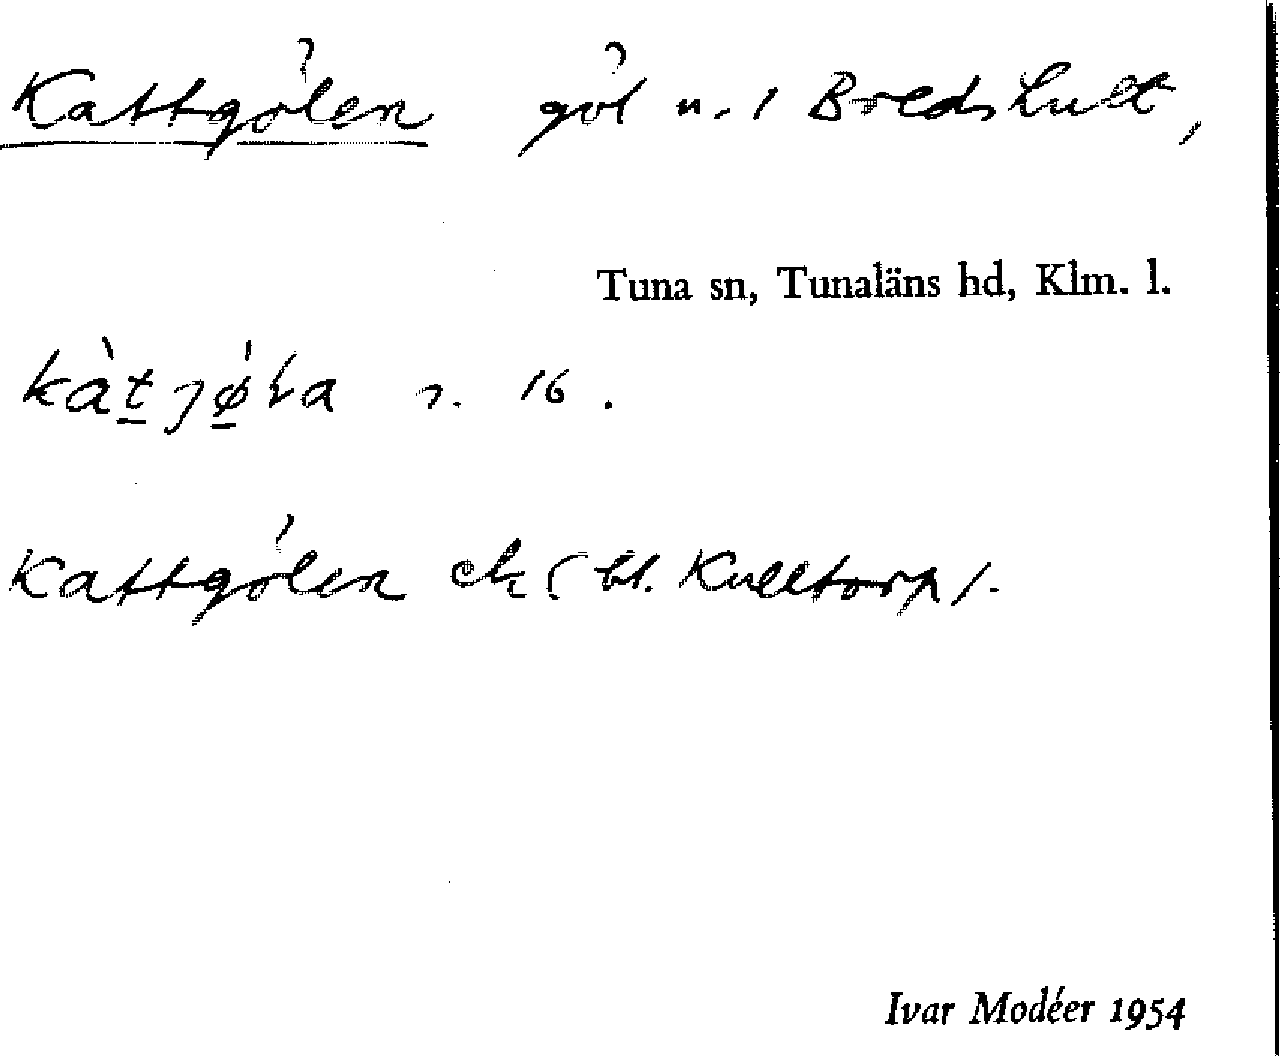 Kattgölen göl n. / Bredshult,
Tuna sn, Tunaläns hd, Klm. l.
16.
Kattgölen ek (bl. Kulltorp).
Ivar Modéer 1954